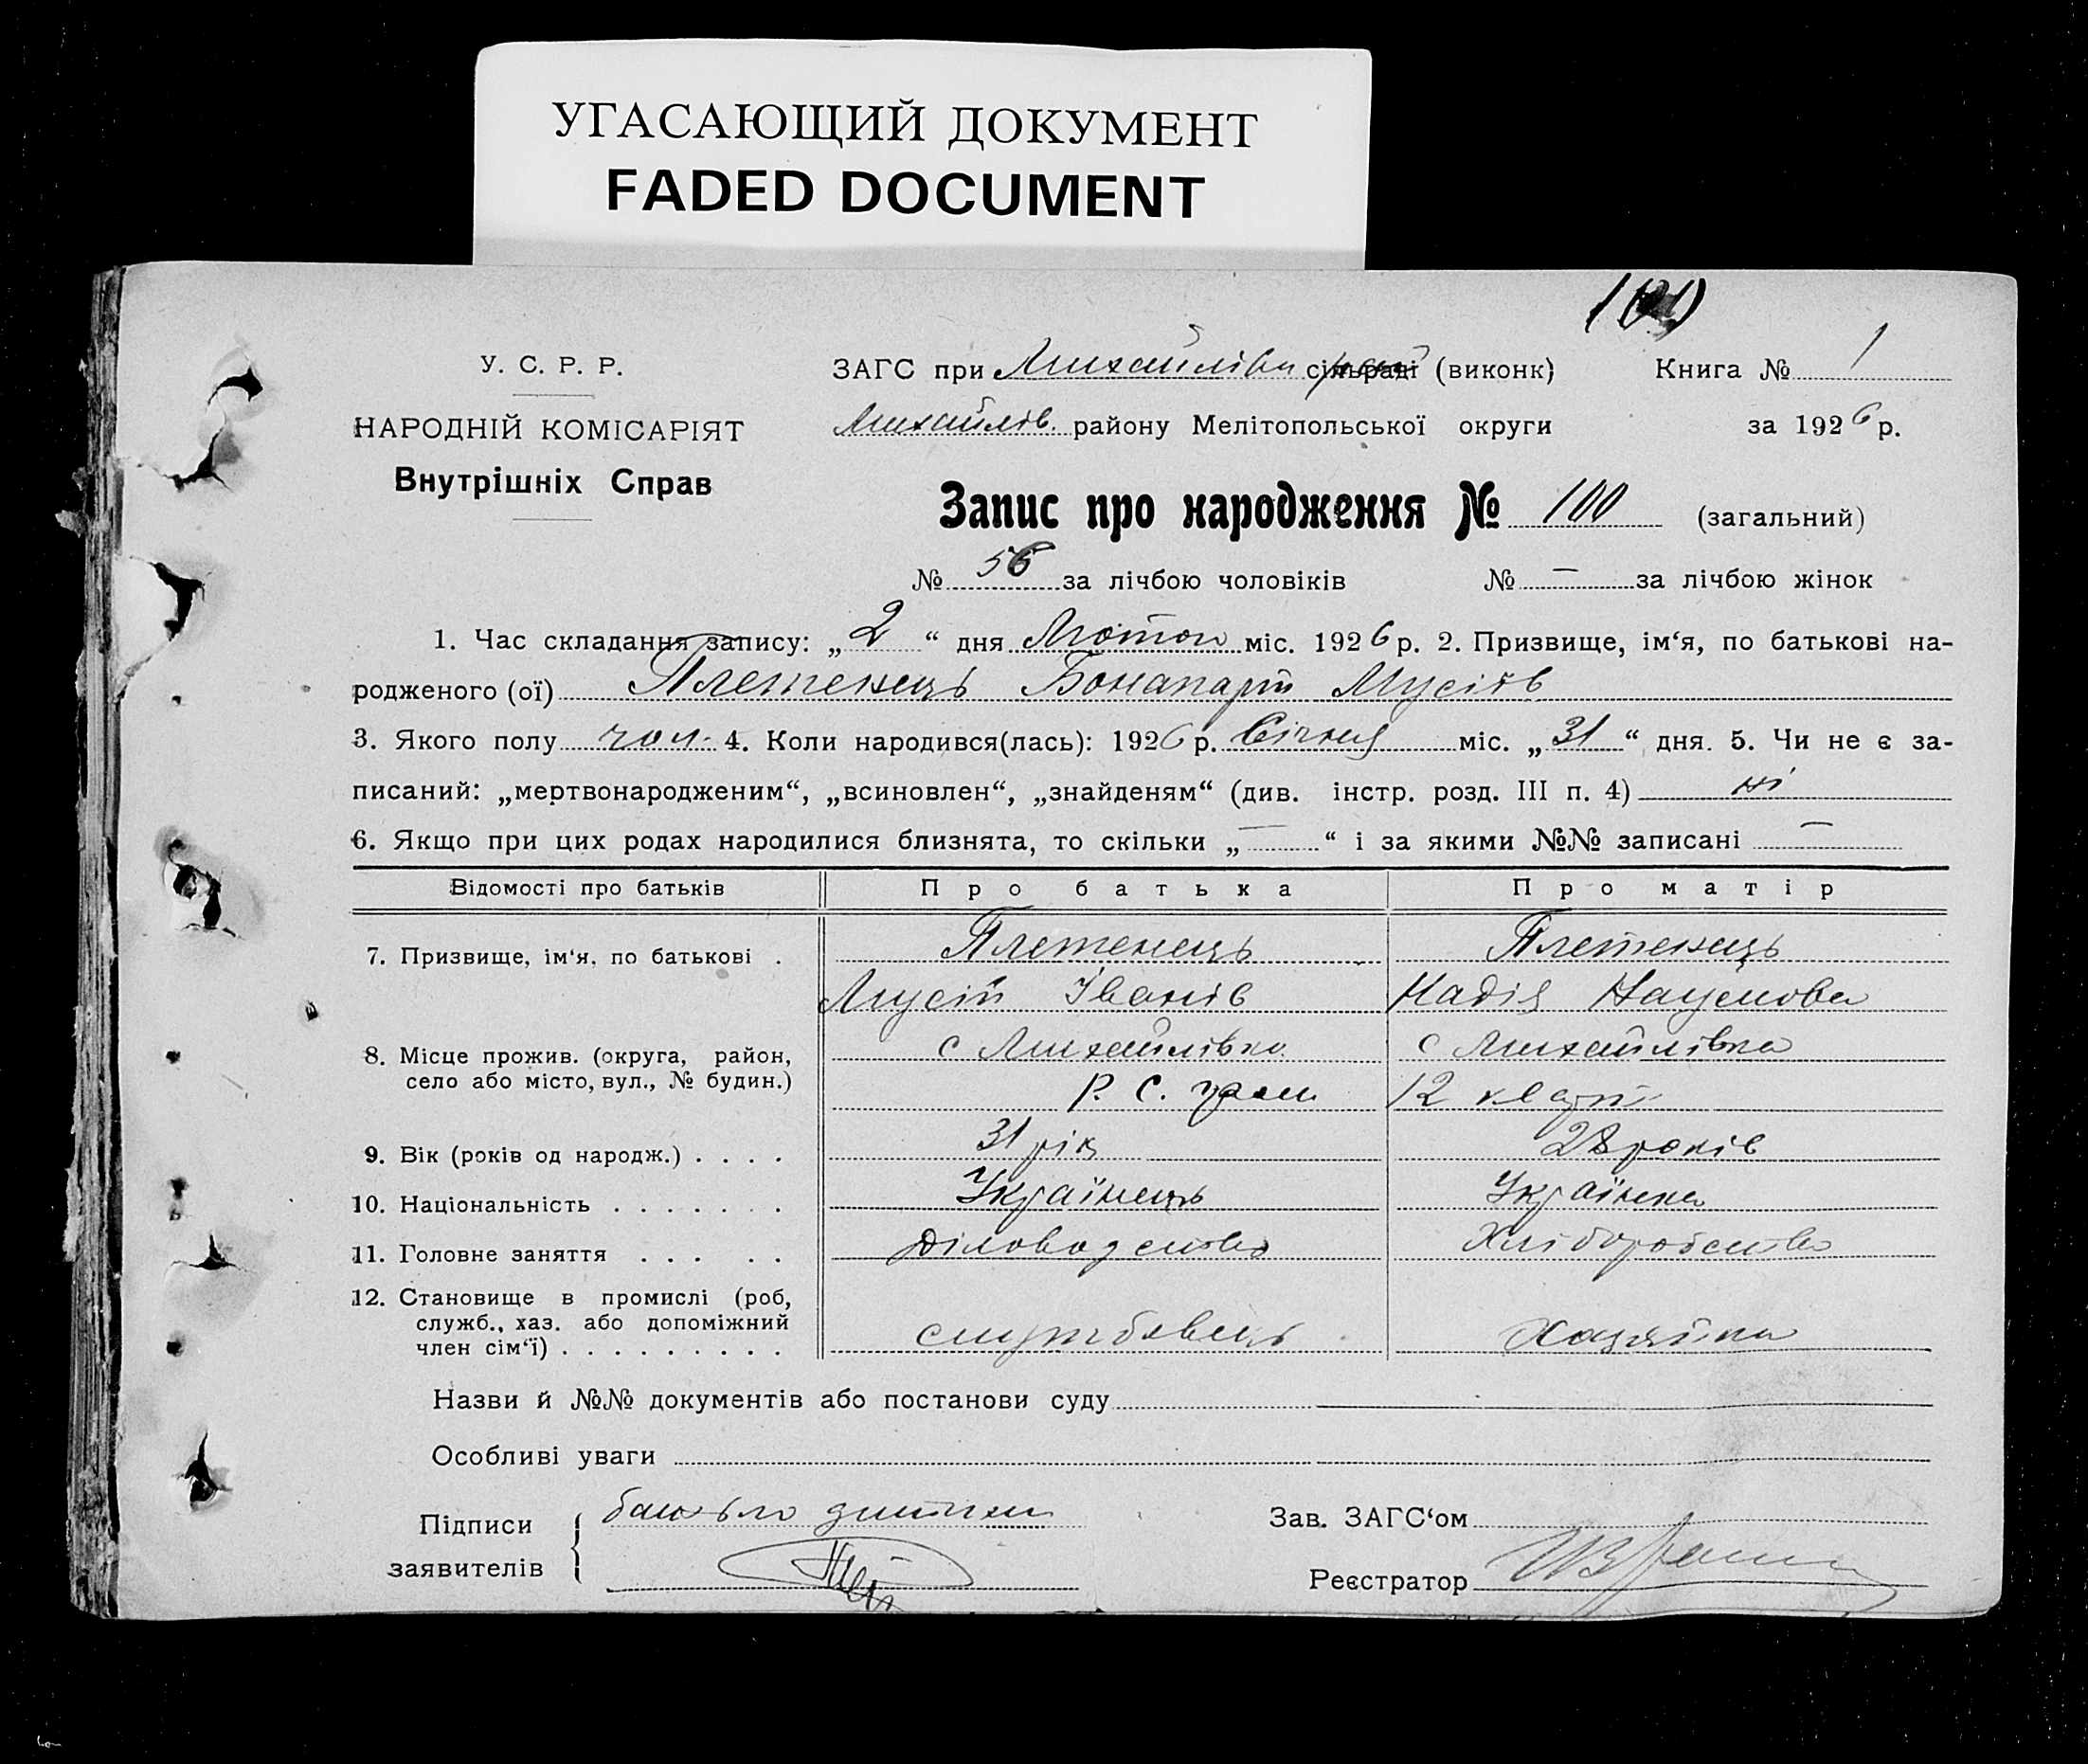 УГАСАЮЩИЙ ДОКУМЕНТ
FADED DOCUMENT
У. С. Р. Р.
НАРОДНІЙ КОМІСАРІЯТ
Внутрішніх Справ
ЗАГС при Михайлівк сільраді (виконк) Книга № 1
Михайлів. району Мелітопольської округи за 1926 р.
Запис про народження № 100 (загальний)
№ 56 за лічбою чоловіків № — за лічбою жінок
1. Час складання запису: „2“ дня Лютого міс. 1926 р. 2. Призвище, ім‘я, по батькові на-
родженого (ої) Плетенець Бонапарт Мусіїв
3. Якого полу чол. 4. Коли народився(лась): 1926 р. Січня міс. „31“ дня. 5. Чи не є за-
писаний: „мертвонародженим“, „всиновлен“, „знайденям“ (див. інстр. розд. III п. 4) ні
6. Якщо при цих родах народилися близнята, то скільки „—“ і за якими №№ записані —
Відомості про батьків Про батька Про матір
7. Призвище, ім‘я, по батькові . Плетенець Плетенець
Мусій Іванів Надія Наумова
8. Місце прожив. (округа, район, с Михайлівка с Михайлівка
село або місто, вул., № будин.) Р. С. 12 кварт
9. Вік (років од народж.) . . . . 31 рік 28 років
10. Національність . . . . . . . Українець Українка
11. Головне заняття . . . . . Діловодство Хліборобство
12. Становище в промислі (роб,
служб., хаз. або допоміжний
член сім‘ї) . . . . . . . . . службовець Хазяйка
Назви й №№ документів або постанови суду
Особливі уваги
Підписи батько дитини Зав. ЗАГС‘ом
заявителів Реєстратор